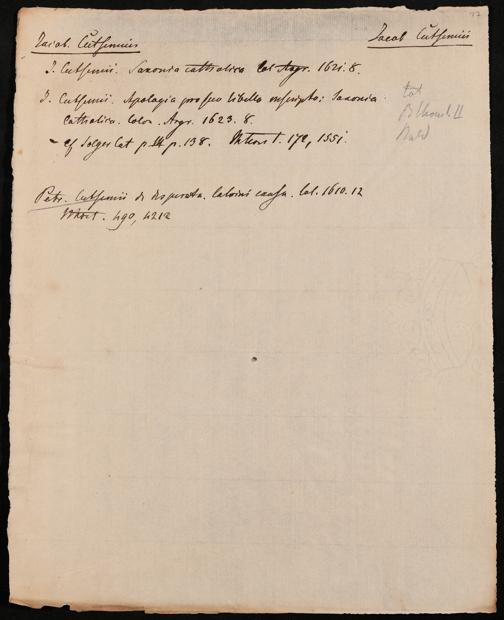 Jacob. Cutsemius Jacob Cutsemius
J. Cutsemii. Saxonia catholica Col. Agr. 1621. 8.
J. Cutsemii. Apologia pro suo libello inscripto: Saxonia
catholica. Colon. Agr. 1623. 8.
cf Solger Cat p. III. p. 138. I. 172, 1551.
Petr. Cutsemii de desperata Calvini causa. Col. 1610. 12
490, 4212